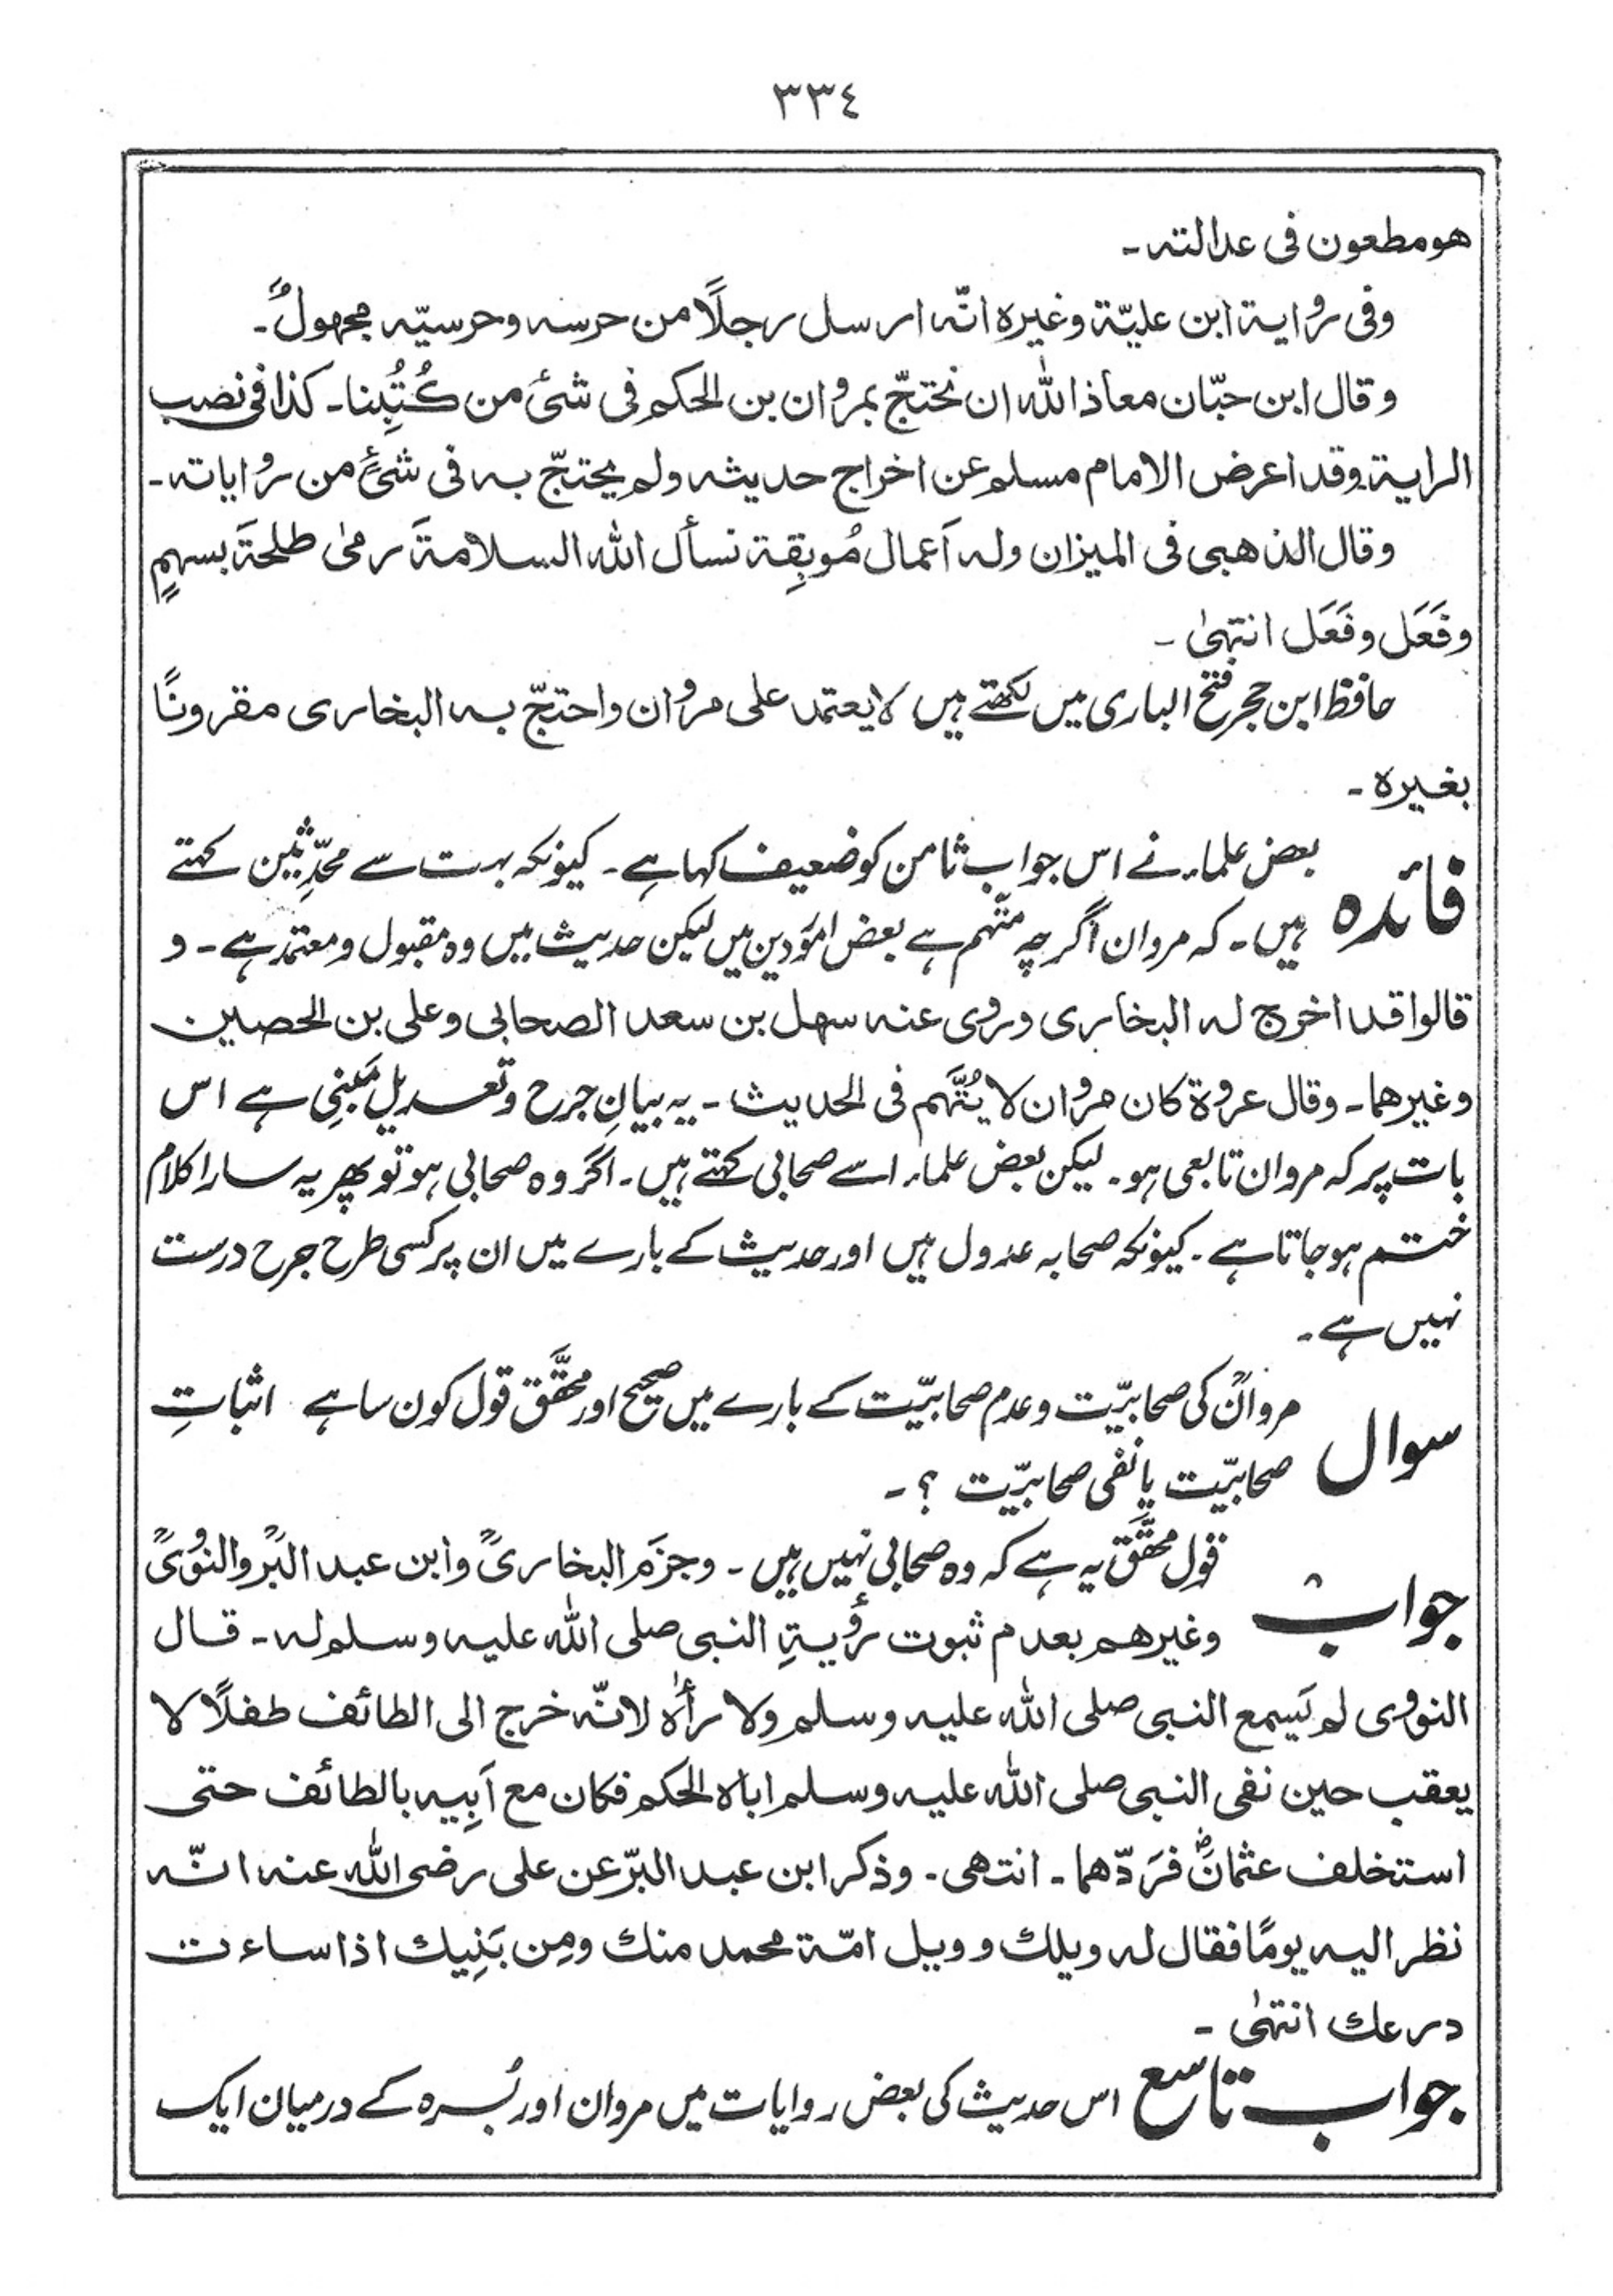 ٣٣٤
هو مطعون فی عدالته ۔
وفی رواية ابن عليّة وغيره انّه ارسل رجلًا من حرسه وحرسيّه مجهولٌ ۔
وقال ابن حبّان معاذ الله ان نحتجّ بمروان بن الحكم فی شیٔ من كُتُبِنا ۔ كذا فی نصب
الراية وقد اعرض الامام مسلم عن اخراج حديثه ولم يحتجّ به فی شیٔ من رواياته ۔
وقال الذهبی فی الميزان وله اَعمال مُوبِقة نسأل الله السلامةَ رمیٰ طلحةَ بسهمٍ
وفَعَل وفَعَل انتهیٰ ۔
حافظ ابن حجر فتح الباری میں لکھتے ہیں لا يعتمد علی مروان واحتجّ به البخاری مقرونًا
بغيره ۔
فائدہ بعض علماء نے اس جواب ثامن کو ضعیف کہا ہے ۔ کیونکہ بہت سے محدِّثین کہتے
ہیں ۔ کہ مروان اگرچہ متّہم ہے بعض امور دین میں لیکن حدیث میں وہ مقبول و معتمد ہے ۔ و
قالوا قد اخرج له البخاری وروی عنه سهل بن سعد الصحابی وعلی بن الحصین
وغيرهما ۔ وقال عروة كان مروان لا يُتَّهم فی الحديث ۔ یہ بیانِ جرح و تعدیل مَبنِی ہے اس
بات پر کہ مروان تابعی ہو ۔ لیکن بعض علماء اسے صحابی کہتے ہیں ۔ اگر وہ صحابی ہو تو پھر یہ سارا کلام
ختم ہو جاتا ہے ۔ کیونکہ صحابہ عدول ہیں اور حدیث کے بارے میں ان پر کسی طرح جرح درست
نہیں ہے ۔
سوال مروان کی صحابیّت و عدم صحابیّت کے بارے میں صحیح اور محقَّق قول کون سا ہے اثباتِ
صحابیّت یا نفی صحابیّت ؟ ۔
جواب قول محقَّق یہ ہے کہ وہ صحابی نہیں ہیں ۔ وجزَم البخاریؒ وابن عبد البرؒ والنوویؒ
وغيرهم بعدم ثبوت رؤيةِ النبی صلی الله عليه وسلم له ۔ قال
النووی لم يَسمع النبی صلی الله عليه وسلم ولا رأٰه لانّه خرج الی الطائف طفلًا لا
يعقب حين نفی النبی صلی الله عليه وسلم اباه الحكم فكان مع اَبِيه بالطائف حتی
استخلف عثمانؓ فرَدّهما ۔ انتهی ۔ وذكر ابن عبد البرّ عن علی رضی الله عنه انّه
نظر اليه يومًا فقال له ويلك وويل امّة محمد منك ومِن بَنِيك اذا ساءت
درعك انتهیٰ ۔
جواب تاسع اس حدیث کی بعض روایات میں مروان اور بُسرہ کے درمیان ایک